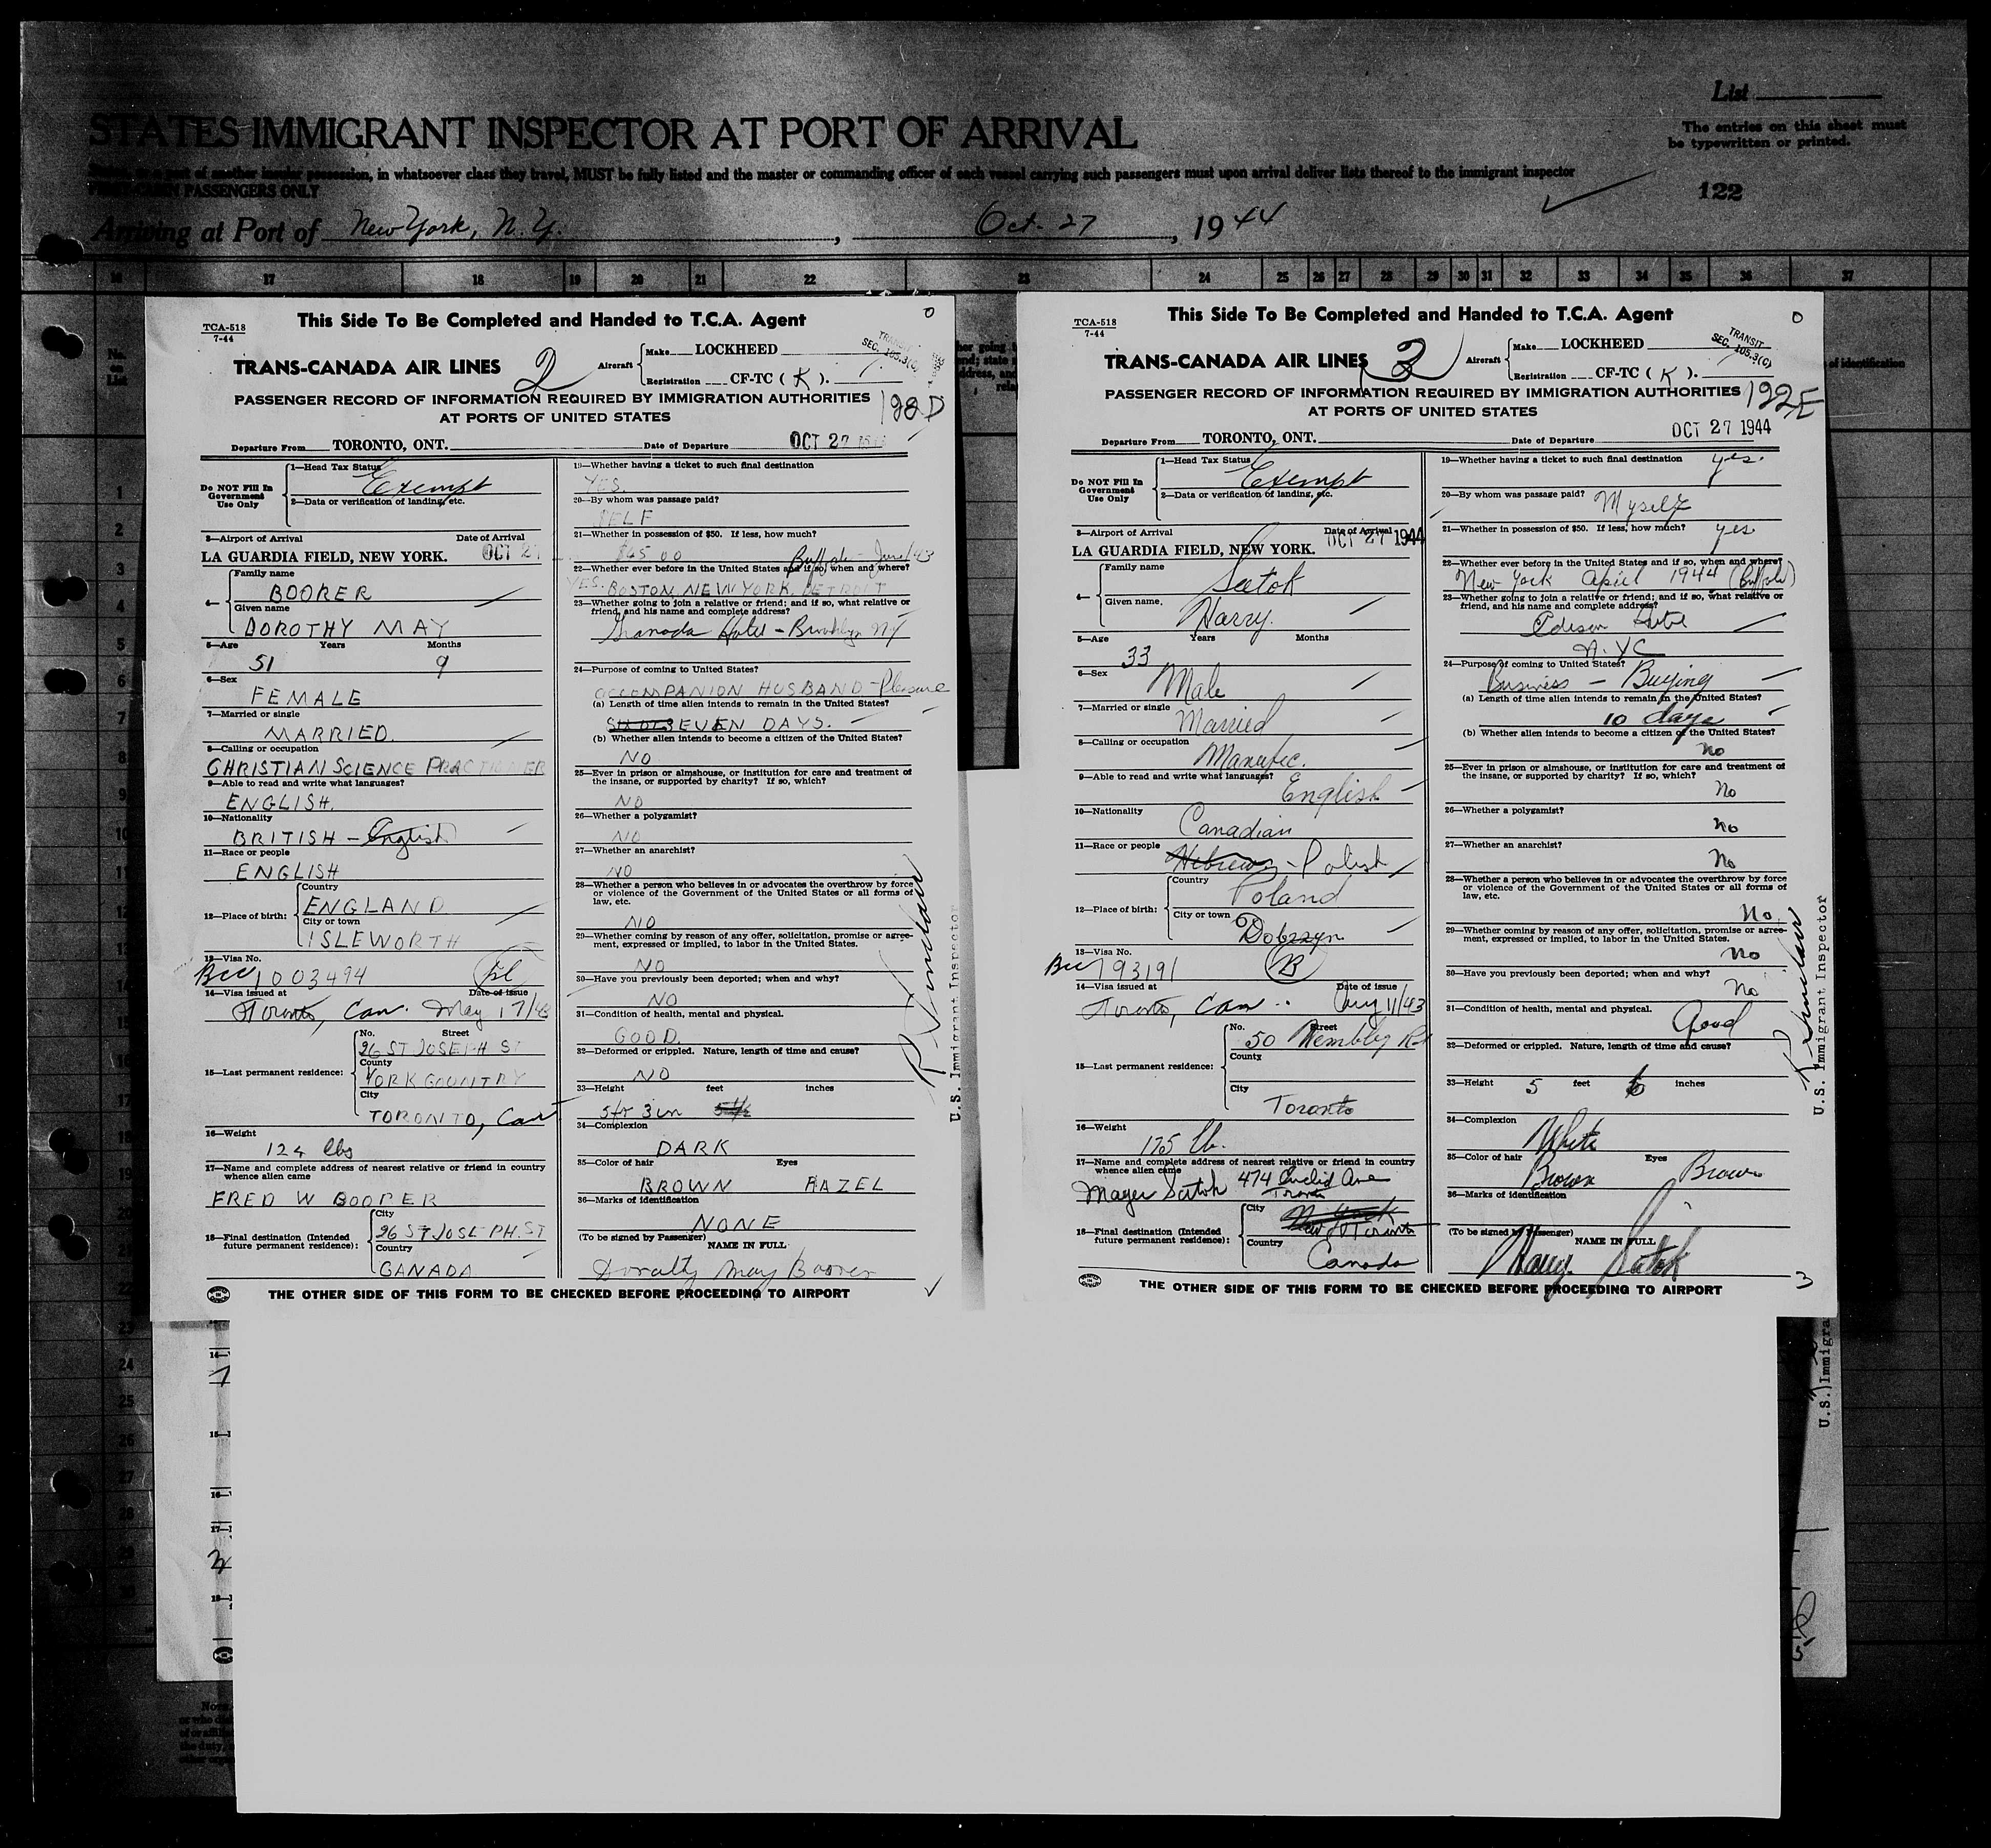 List
STATES IMMIGRANT INSPECTOR AT PORT OF ARRIVAL
The entries on this sheet must
be typewritten or printed.
possession, in whatsoever class they travel, MUST be fully listed and the master or commanding officer of each vessel carrying such passengers must upon arrival deliver lists thereof to the immigrant inspector
PASSENGERS ONLY
122
Arriving at Port of New York, N.Y. , Oct. 27 , 1944
16 17 18 19 20 21 22 23 24 25 26 27 28 29 30 31 32 33 34 35 36 37
This Side To Be Completed and Handed to T.C.A. Agent
TCA-518
7-44
TRANS-CANADA AIR LINES
2
Aircraft
Make LOCKHEED
Registration CF-TC ( K ).
PASSENGER RECORD OF INFORMATION REQUIRED BY IMMIGRATION AUTHORITIES
AT PORTS OF UNITED STATES
122 D
Departure From TORONTO, ONT. Date of Departure OCT 27
1—Head Tax Status
Exempt
Do NOT Fill In
Government
Use Only
2—Data or verification of landing, etc.
3—Airport of Arrival Date of Arrival
LA GUARDIA FIELD, NEW YORK. OCT 27
4—
Family name
BOORER
Given name
DOROTHY MAY
5—Age Years Months
51 9
6—Sex
FEMALE
7—Married or single
MARRIED.
8—Calling or occupation
CHRISTIAN SCIENCE PRACTIONER
9—Able to read and write what languages?
ENGLISH.
10—Nationality
BRITISH - English
11—Race or people
ENGLISH
12—Place of birth:
Country
ENGLAND
City or town
ISLEWORTH
13—Visa No.
Bcc 1003494
14—Visa issued at Date of issue
Toronto, Can. May 17/43
15—Last permanent residence:
No. Street
26 ST JOSEPH ST
County
YORK COUNTRY
City
TORONTO, Can
16—Weight
124 lbs
17—Name and complete address of nearest relative or friend in country
whence alien came
FRED W BOORER
18—Final destination (Intended
future permanent residence):
City
26 ST JOSEPH. ST
Country
CANADA
19—Whether having a ticket to such final destination
YES.
20—By whom was passage paid?
SELF
21—Whether in possession of $50. If less, how much?
$65 00 Buffalo - June/43
22—Whether ever before in the United States and if so, when and where?
YES. BOSTON, NEW YORK, DETROIT
23—Whether going to join a relative or friend; and if so, what relative or
friend, and his name and complete address?
Granada Hotel - Brooklyn NY
24—Purpose of coming to United States?
ACCOMPANION HUSBAND - Pleasure
(a) Length of time alien intends to remain in the United States?
SEVEN DAYS.
(b) Whether alien intends to become a citizen of the United States?
NO
25—Ever in prison or almshouse, or institution for care and treatment of
the insane, or supported by charity? If so, which?
NO
26—Whether a polygamist?
NO
27—Whether an anarchist?
NO
28—Whether a person who believes in or advocates the overthrow by force
or violence of the Government of the United States or all forms of
law, etc.
NO
29—Whether coming by reason of any offer, solicitation, promise or agree-
ment, expressed or implied, to labor in the United States.
NO
30—Have you previously been deported; when and why?
NO
31—Condition of health, mental and physical.
GOOD.
32—Deformed or crippled. Nature, length of time and cause?
NO
33—Height feet inches
5 ft 3 in
34—Complexion
DARK
35—Color of hair Eyes
BROWN HAZEL
36—Marks of identification
NONE
(To be signed by Passenger)
NAME IN FULL
Dorothy May Boorer
THE OTHER SIDE OF THIS FORM TO BE CHECKED BEFORE PROCEEDING TO AIRPORT
U.S. Immigrant Inspector
This Side To Be Completed and Handed to T.C.A. Agent
TCA-518
7-44
TRANS-CANADA AIR LINES
3
Aircraft
Make LOCKHEED
Registration CF-TC ( K ).
TRANSIT
SEC. 105.3(C)
PASSENGER RECORD OF INFORMATION REQUIRED BY IMMIGRATION AUTHORITIES
AT PORTS OF UNITED STATES
122E
Departure From TORONTO, ONT. Date of Departure OCT 27 1944
1—Head Tax Status
Exempt
Do NOT Fill In
Government
Use Only
2—Data or verification of landing, etc.
3—Airport of Arrival Date of Arrival
LA GUARDIA FIELD, NEW YORK. OCT 27 1944
4—
Family name
Sutok
Given name,
Harry.
5—Age Years Months
33
6—Sex
Male
7—Married or single
Married
8—Calling or occupation
Manufec.
9—Able to read and write what languages?
English
10—Nationality
Canadian
11—Race or people
Hebrew - Polish
12—Place of birth:
Country
Poland
City or town
Dobrzyn
13—Visa No.
Bcc 193191 B
14—Visa issued at Date of issue
Toronto, Can. Aug 11/43
15—Last permanent residence:
No. Street
50 Wembley Rd
County
City
Toronto
16—Weight
175 lb.
17—Name and complete address of nearest relative or friend in country
whence alien came
Mayer Sutok 474 Euclid Ave
Toronto
18—Final destination (Intended
future permanent residence):
City
Toronto
Country
Canada
19—Whether having a ticket to such final destination yes.
20—By whom was passage paid?
Myself
21—Whether in possession of $50. If less, how much? yes
22—Whether ever before in the United States and if so, when and where?
New York April 1944 (Buffalo)
23—Whether going to join a relative or friend; and if so, what relative or
friend, and his name and complete address?
Edison Hotel
N.Y.C
24—Purpose of coming to United States?
Business - Buying
(a) Length of time alien intends to remain in the United States?
10 days
(b) Whether alien intends to become a citizen of the United States?
No
25—Ever in prison or almshouse, or institution for care and treatment of
the insane, or supported by charity? If so, which?
No
26—Whether a polygamist?
No
27—Whether an anarchist?
No
28—Whether a person who believes in or advocates the overthrow by force
or violence of the Government of the United States or all forms of
law, etc.
No.
29—Whether coming by reason of any offer, solicitation, promise or agree-
ment, expressed or implied, to labor in the United States.
No
30—Have you previously been deported; when and why?
No
31—Condition of health, mental and physical.
Good
32—Deformed or crippled. Nature, length of time and cause?
33—Height 5 feet 6 inches
34—Complexion
White
35—Color of hair Eyes
Brown Brown
36—Marks of identification
(To be signed by Passenger)
NAME IN FULL
Harry Sutok
3
THE OTHER SIDE OF THIS FORM TO BE CHECKED BEFORE PROCEEDING TO AIRPORT
U.S. Immigrant Inspector